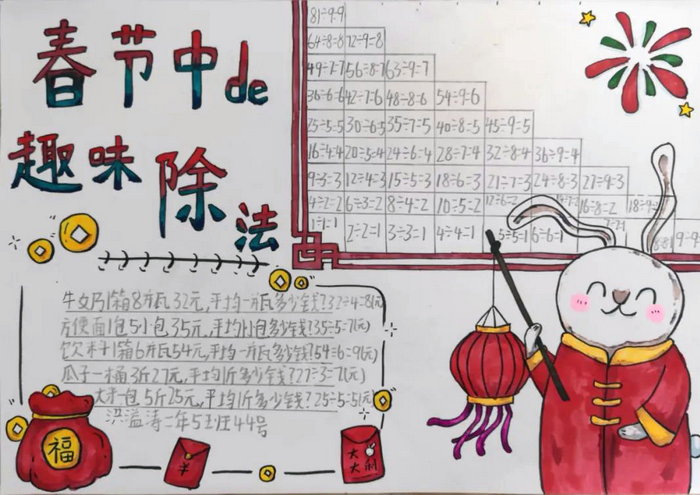 春节中de
趣味除法
81÷9=9
64÷8=8 72÷9=8
49÷7=7 56÷8=7 63÷9=7
36÷6=6 42÷7=6 48÷8=6 54÷9=6
25÷5=5 30÷6=5 35÷7=5 40÷8=5 45÷9=5
16÷4=4 20÷5=4 24÷6=4 28÷7=4 32÷8=4 36÷9=4
9÷3=3 12÷4=3 15÷5=3 18÷6=3 21÷7=3 24÷8=3 27÷9=3
4÷2=2 6÷3=2 8÷4=2 10÷5=2 12÷6=2 16÷8=2 18÷9=2
1÷1=1 2÷2=1 3÷3=1 4÷4=1 5÷5=1 6÷6=1
牛奶1箱8瓶32元,平均一瓶多少钱?32÷4=8(元)
方便面1包5小包35元,平均1小包多少钱?35÷5=7(元)
饮料1箱6瓶54元,平均一瓶多少钱?54÷6=9(元)
瓜子一桶3斤27元,平均1斤多少钱?27÷3=7(元)
一包5斤25元,平均1斤多少钱?25÷5=5(元)
洪溢涛二年5班44号
福
大大
利